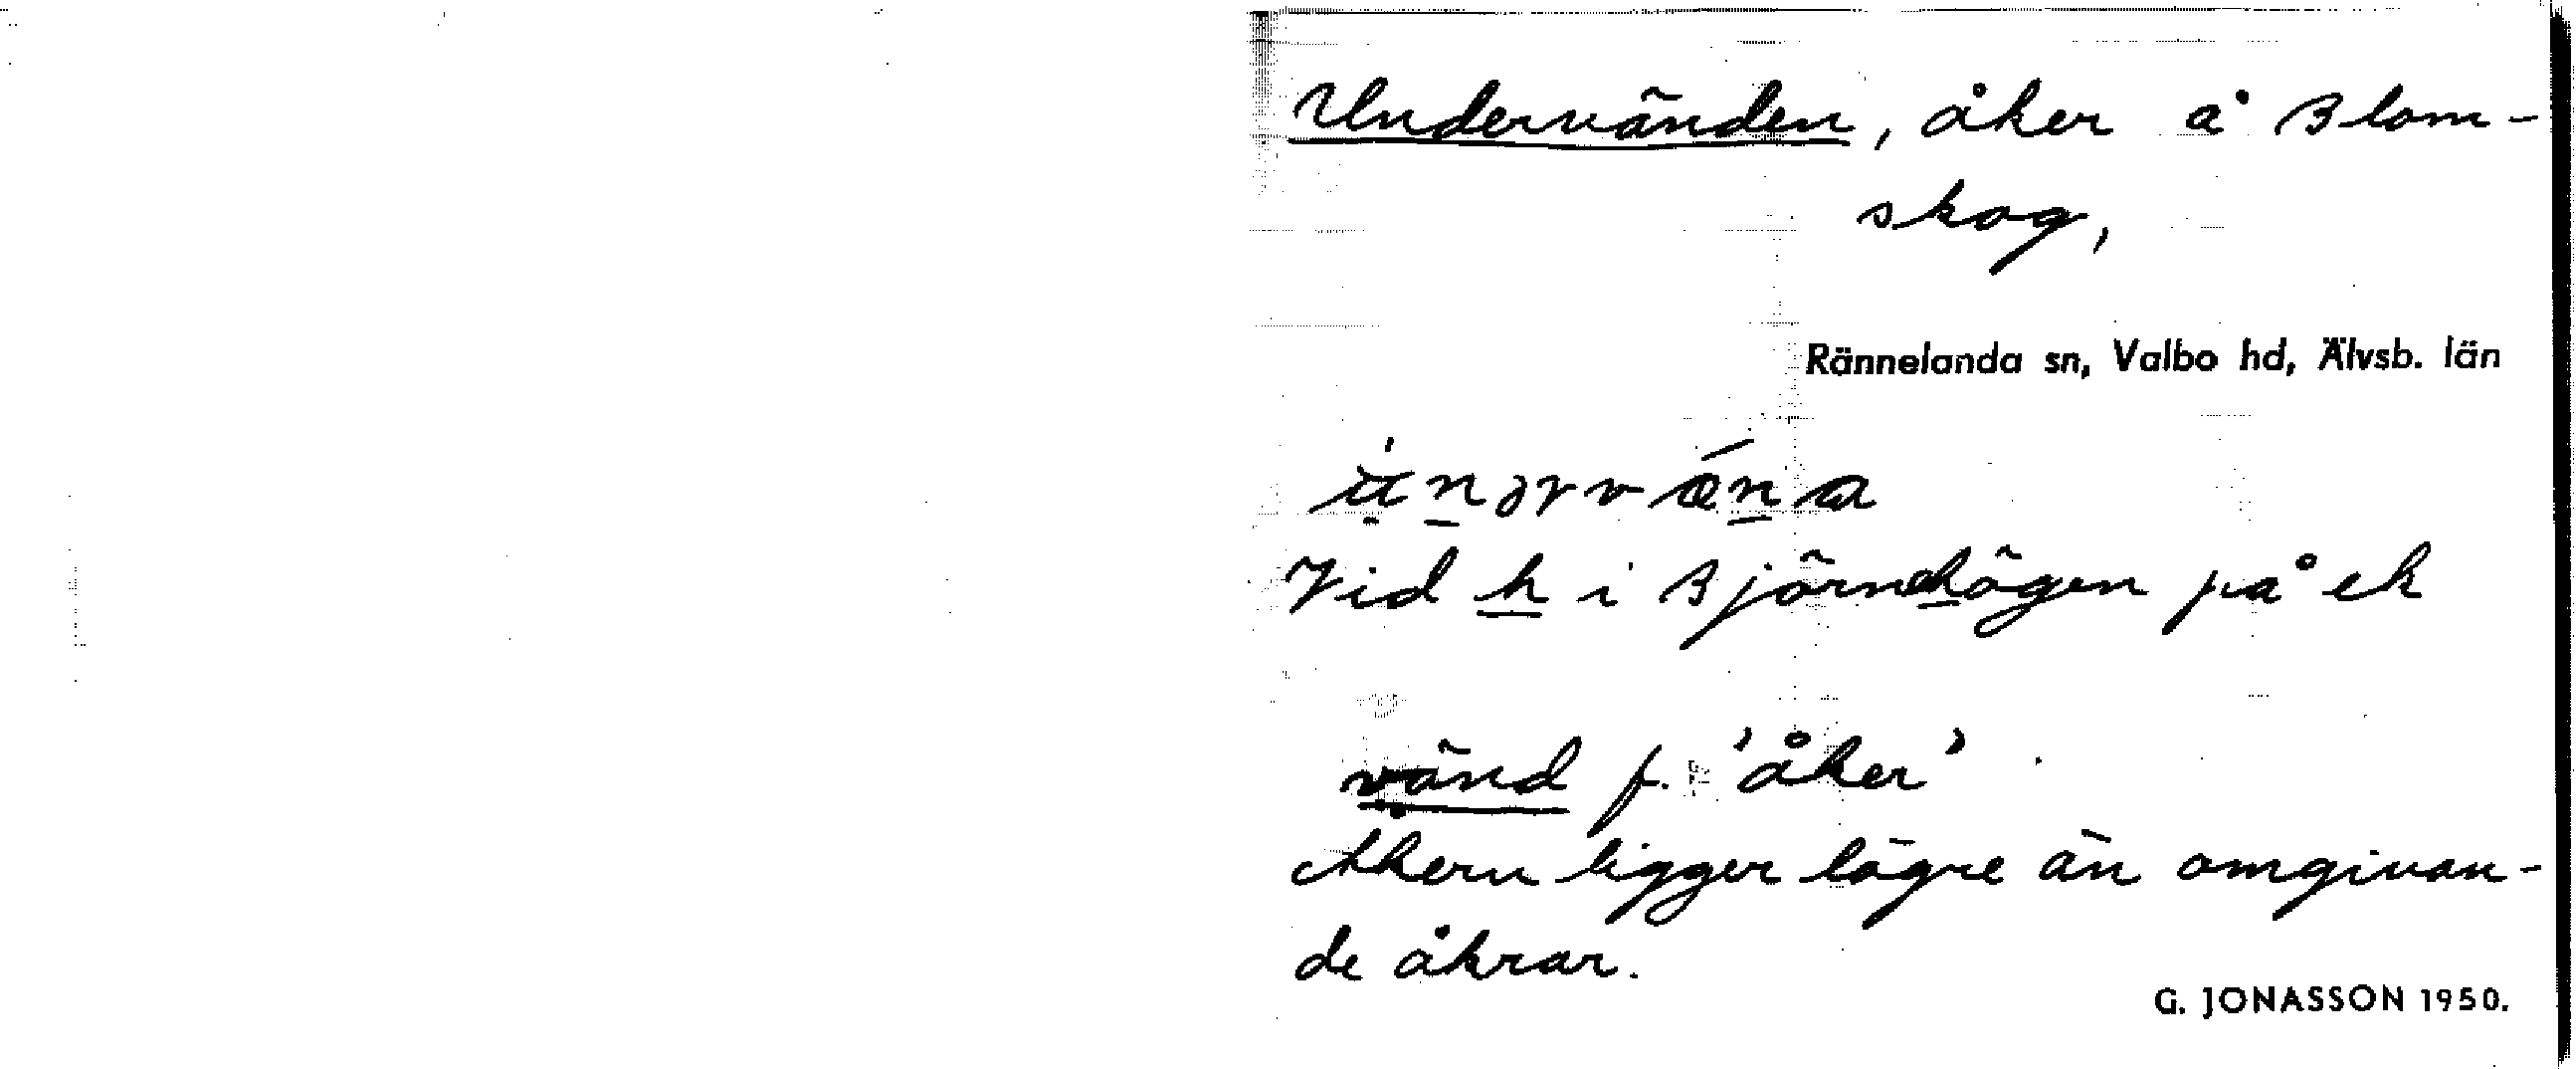 Undervänden, åker å Blom-
skog,
Rännelanda sn, Valbo hd, Älvsb. län
Vid h i Björnehögen på ek
vänd f. 'åker'
Åkern ligger lägre än omgivan-
de åkrar.
G. JONASSON 1950.